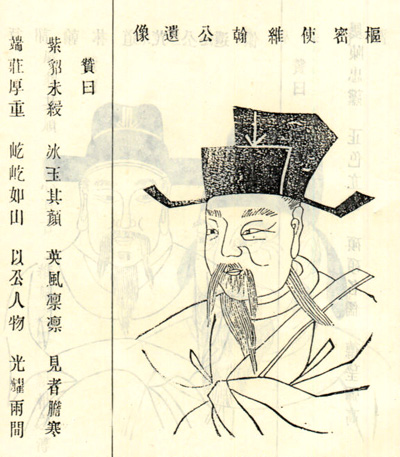 樞密使維翰公遺像
贊曰
紫貂朱綬 冰玉其顏 英風凛凛 見者膽寒
端莊厚重 屹屹如山 以公人物 光耀兩間